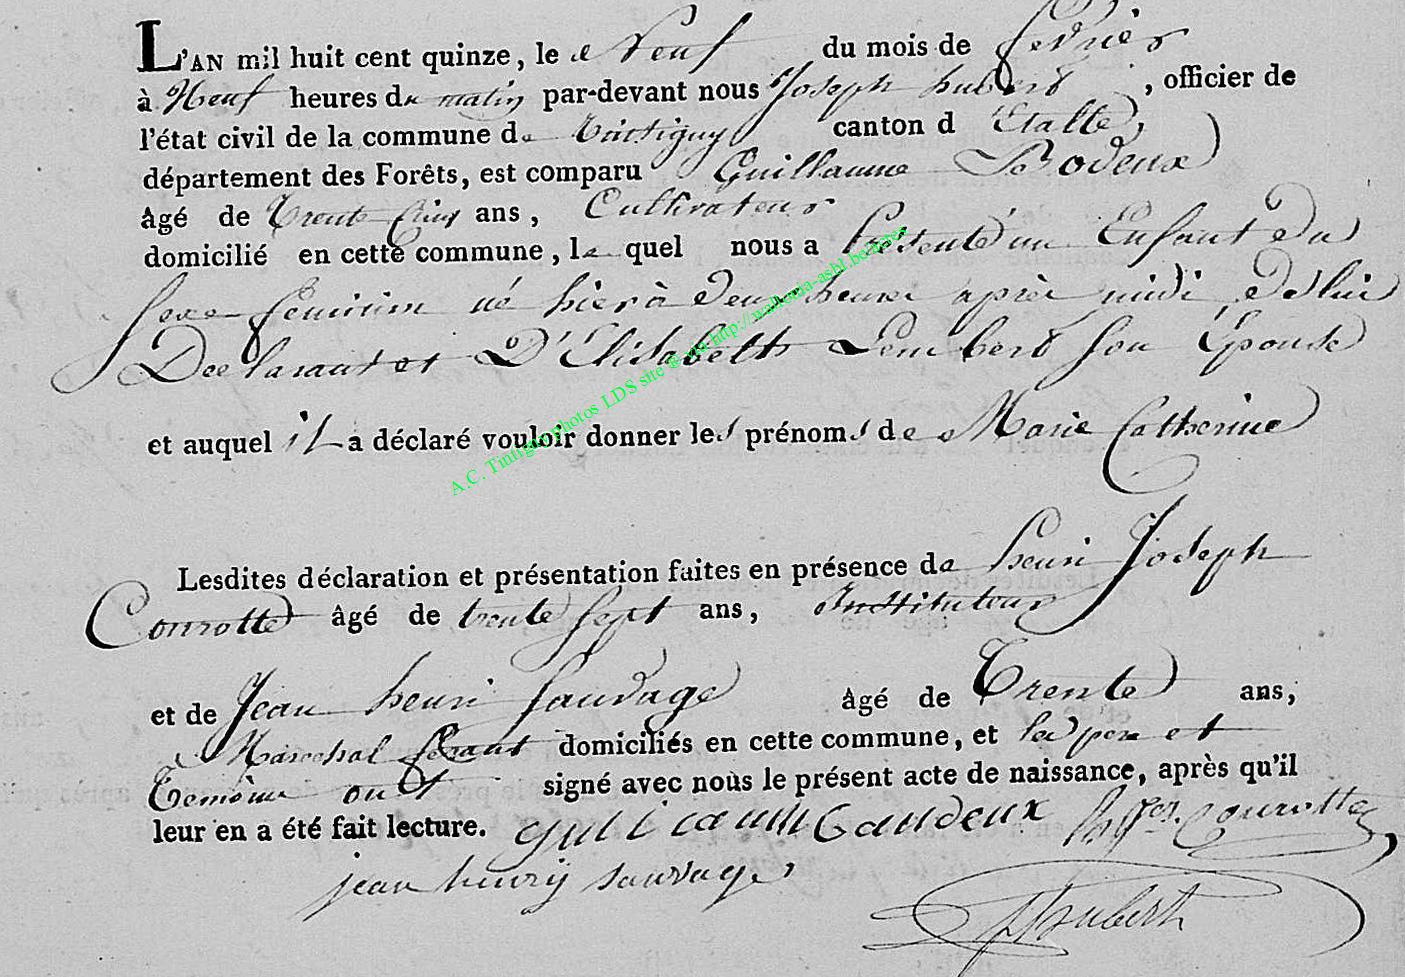 L'AN mil huit cent quinze, le Neuf du mois de fevrier
à Neuf heures du matin par-devant nous Joseph hubert, officier de
l'état civil de la commune de Tintigny canton d'Etalle,
département des Forêts, est comparu Guillaume Bodeux
âgé de Trente Cinq ans, Cultivateur
domicilié en cette commune, lequel nous a présenté un Enfant du
sexe feminin né hier à deux heures après midi de lui
Declarant et D'Elisabeth Lembert son Épouse
et auquel il a déclaré vouloir donner les prénoms de Marie Catherine
Lesdites déclaration et présentation faites en présence de henri Joseph
Courotte âgé de trente sept ans, Instituteur
et de Jean henri Sauvage âgé de Trente ans,
Marechal ferant domiciliés en cette commune, et le pere et
Temoins ont signé avec nous le présent acte de naissance, après qu'il
leur en a été fait lecture. guilliaum Baudeux h. jos. Courotte
jean henry sauvage
Hubert
A.C. Tintigny photos LDS site @ via http://wallonia-asbl.be/actes